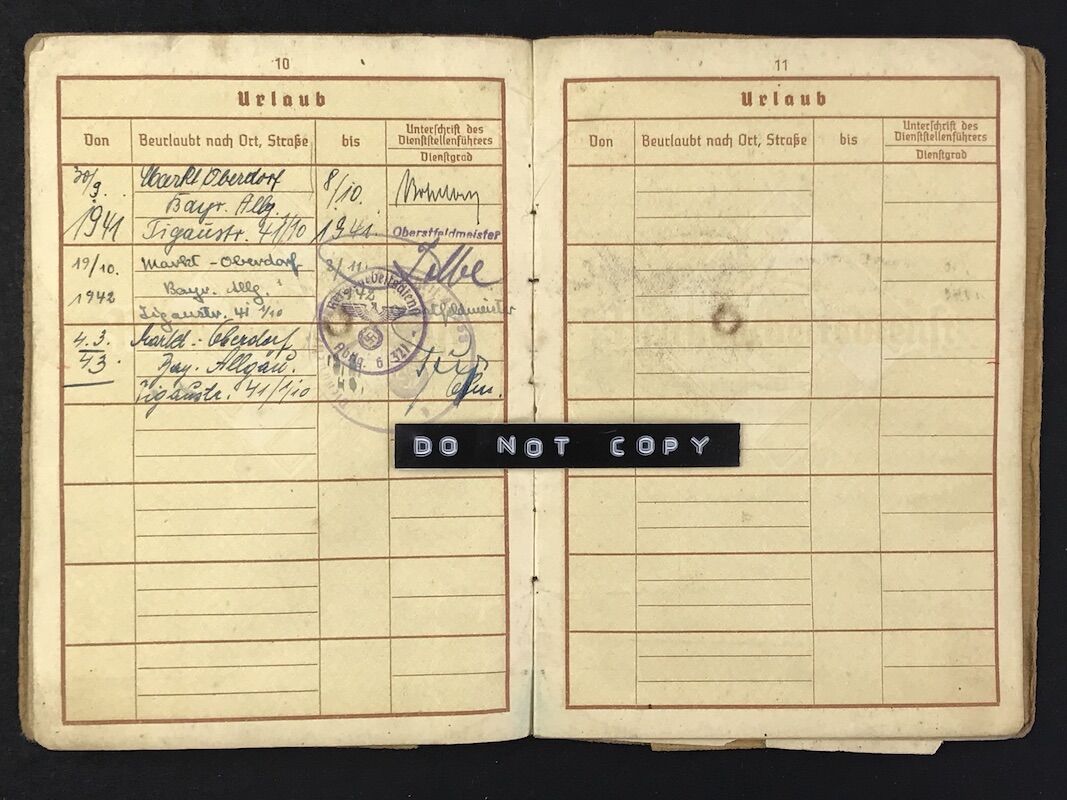 10
Urlaub
Von Beurlaubt nach Ort, Straße bis Unterschrift des Dienststellenführers
Dienstgrad
30/9. Markt Oberdorf 8/10.
Bayr. Allg.
1941 Tigaustr. 41/10 1941.
Oberstfeldmeister
19/10. Markt-Oberdorf
Bayr. Allg
1942 Tigaustr. 41 1/10 1942
4.3. Markt-Oberdorf
43 Bay. Allgäu.
Tigaustr. 41/1/10
Reichsarbeitsdienst
Abtlg. 6 321
DO NOT COPY
11
Urlaub
Von Beurlaubt nach Ort, Straße bis Unterschrift des Dienststellenführers
Dienstgrad